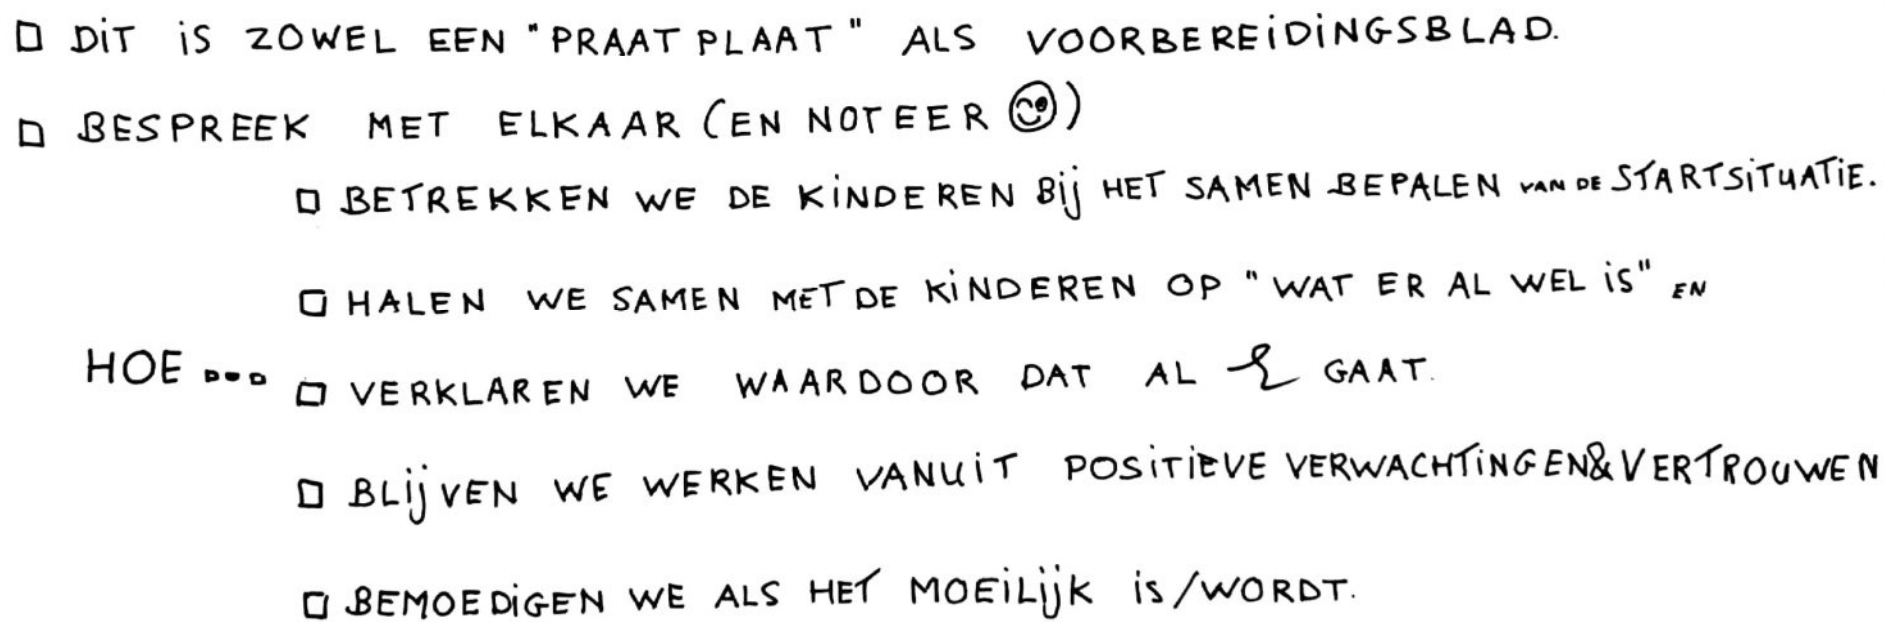 □ DIT IS ZOWEL EEN "PRAATPLAAT" ALS VOORBEREIDINGSBLAD.
□ BESPREEK MET ELKAAR (EN NOTEER ☺)
□ BETREKKEN WE DE KINDEREN BIJ HET SAMEN BEPALEN VAN DE STARTSITUATIE.
□ HALEN WE SAMEN MET DE KINDEREN OP "WAT ER AL WEL IS" EN
HOE ...
□ VERKLAREN WE WAARDOOR DAT AL GAAT.
□ BLIJVEN WE WERKEN VANUIT POSITIEVE VERWACHTINGEN & VERTROUWEN
□ BEMOEDIGEN WE ALS HET MOEILIJK IS/WORDT.